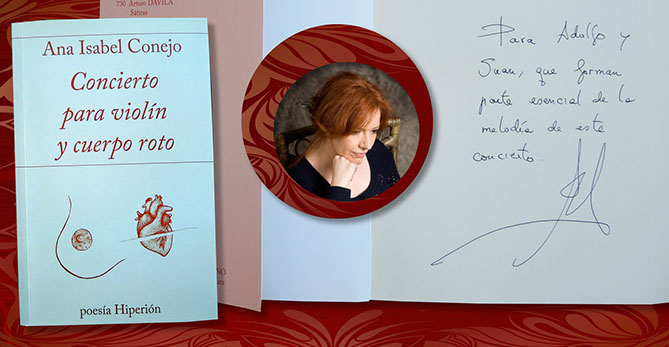 Ana Isabel Conejo
Concierto
para violín
y cuerpo roto
poesía Hiperión
730 Arturo DÁVILA
Para Adolfo y
Juan, que forman
parte esencial de la
melodía de este
concierto.